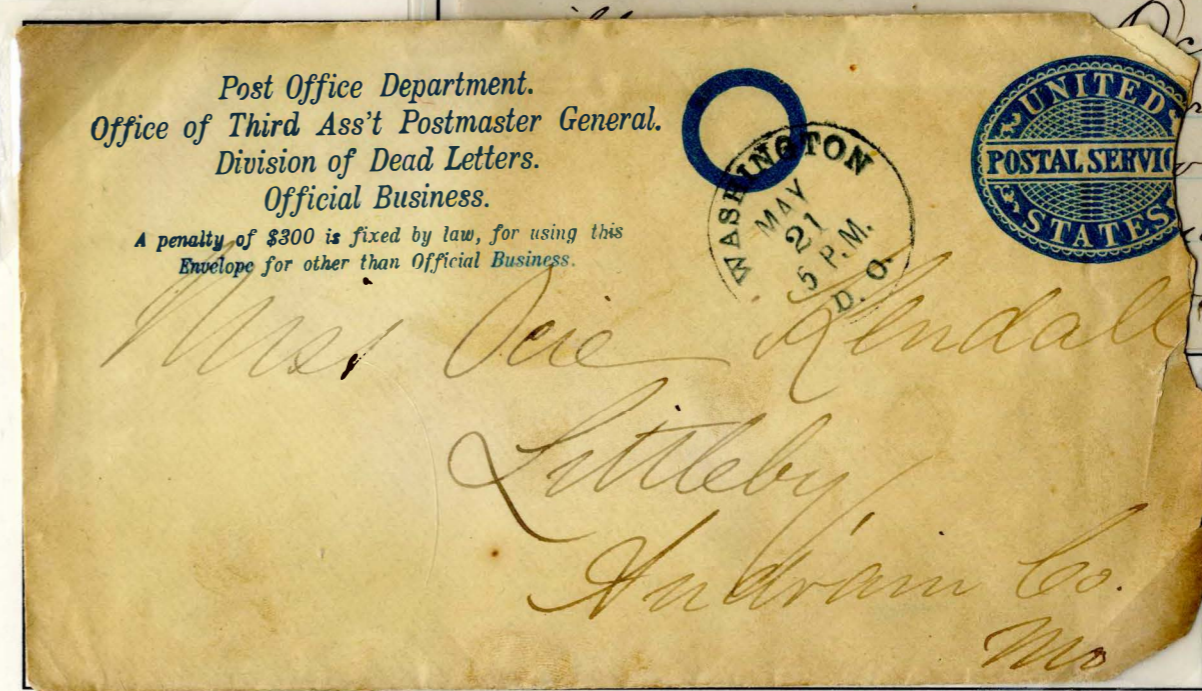 Post Office Department.
Office of Third Ass't Postmaster General.
Division of Dead Letters.
Official Business.
A penalty of $300 is fixed by law, for using this
Envelope for other than Official Business.
WASHINGTON
MAY
21
5 P.M.
D. C.
UNITED
POSTAL SERVIC
STATES
Miss Ocie Kendall
Littleby
Audrain Co.
Mo